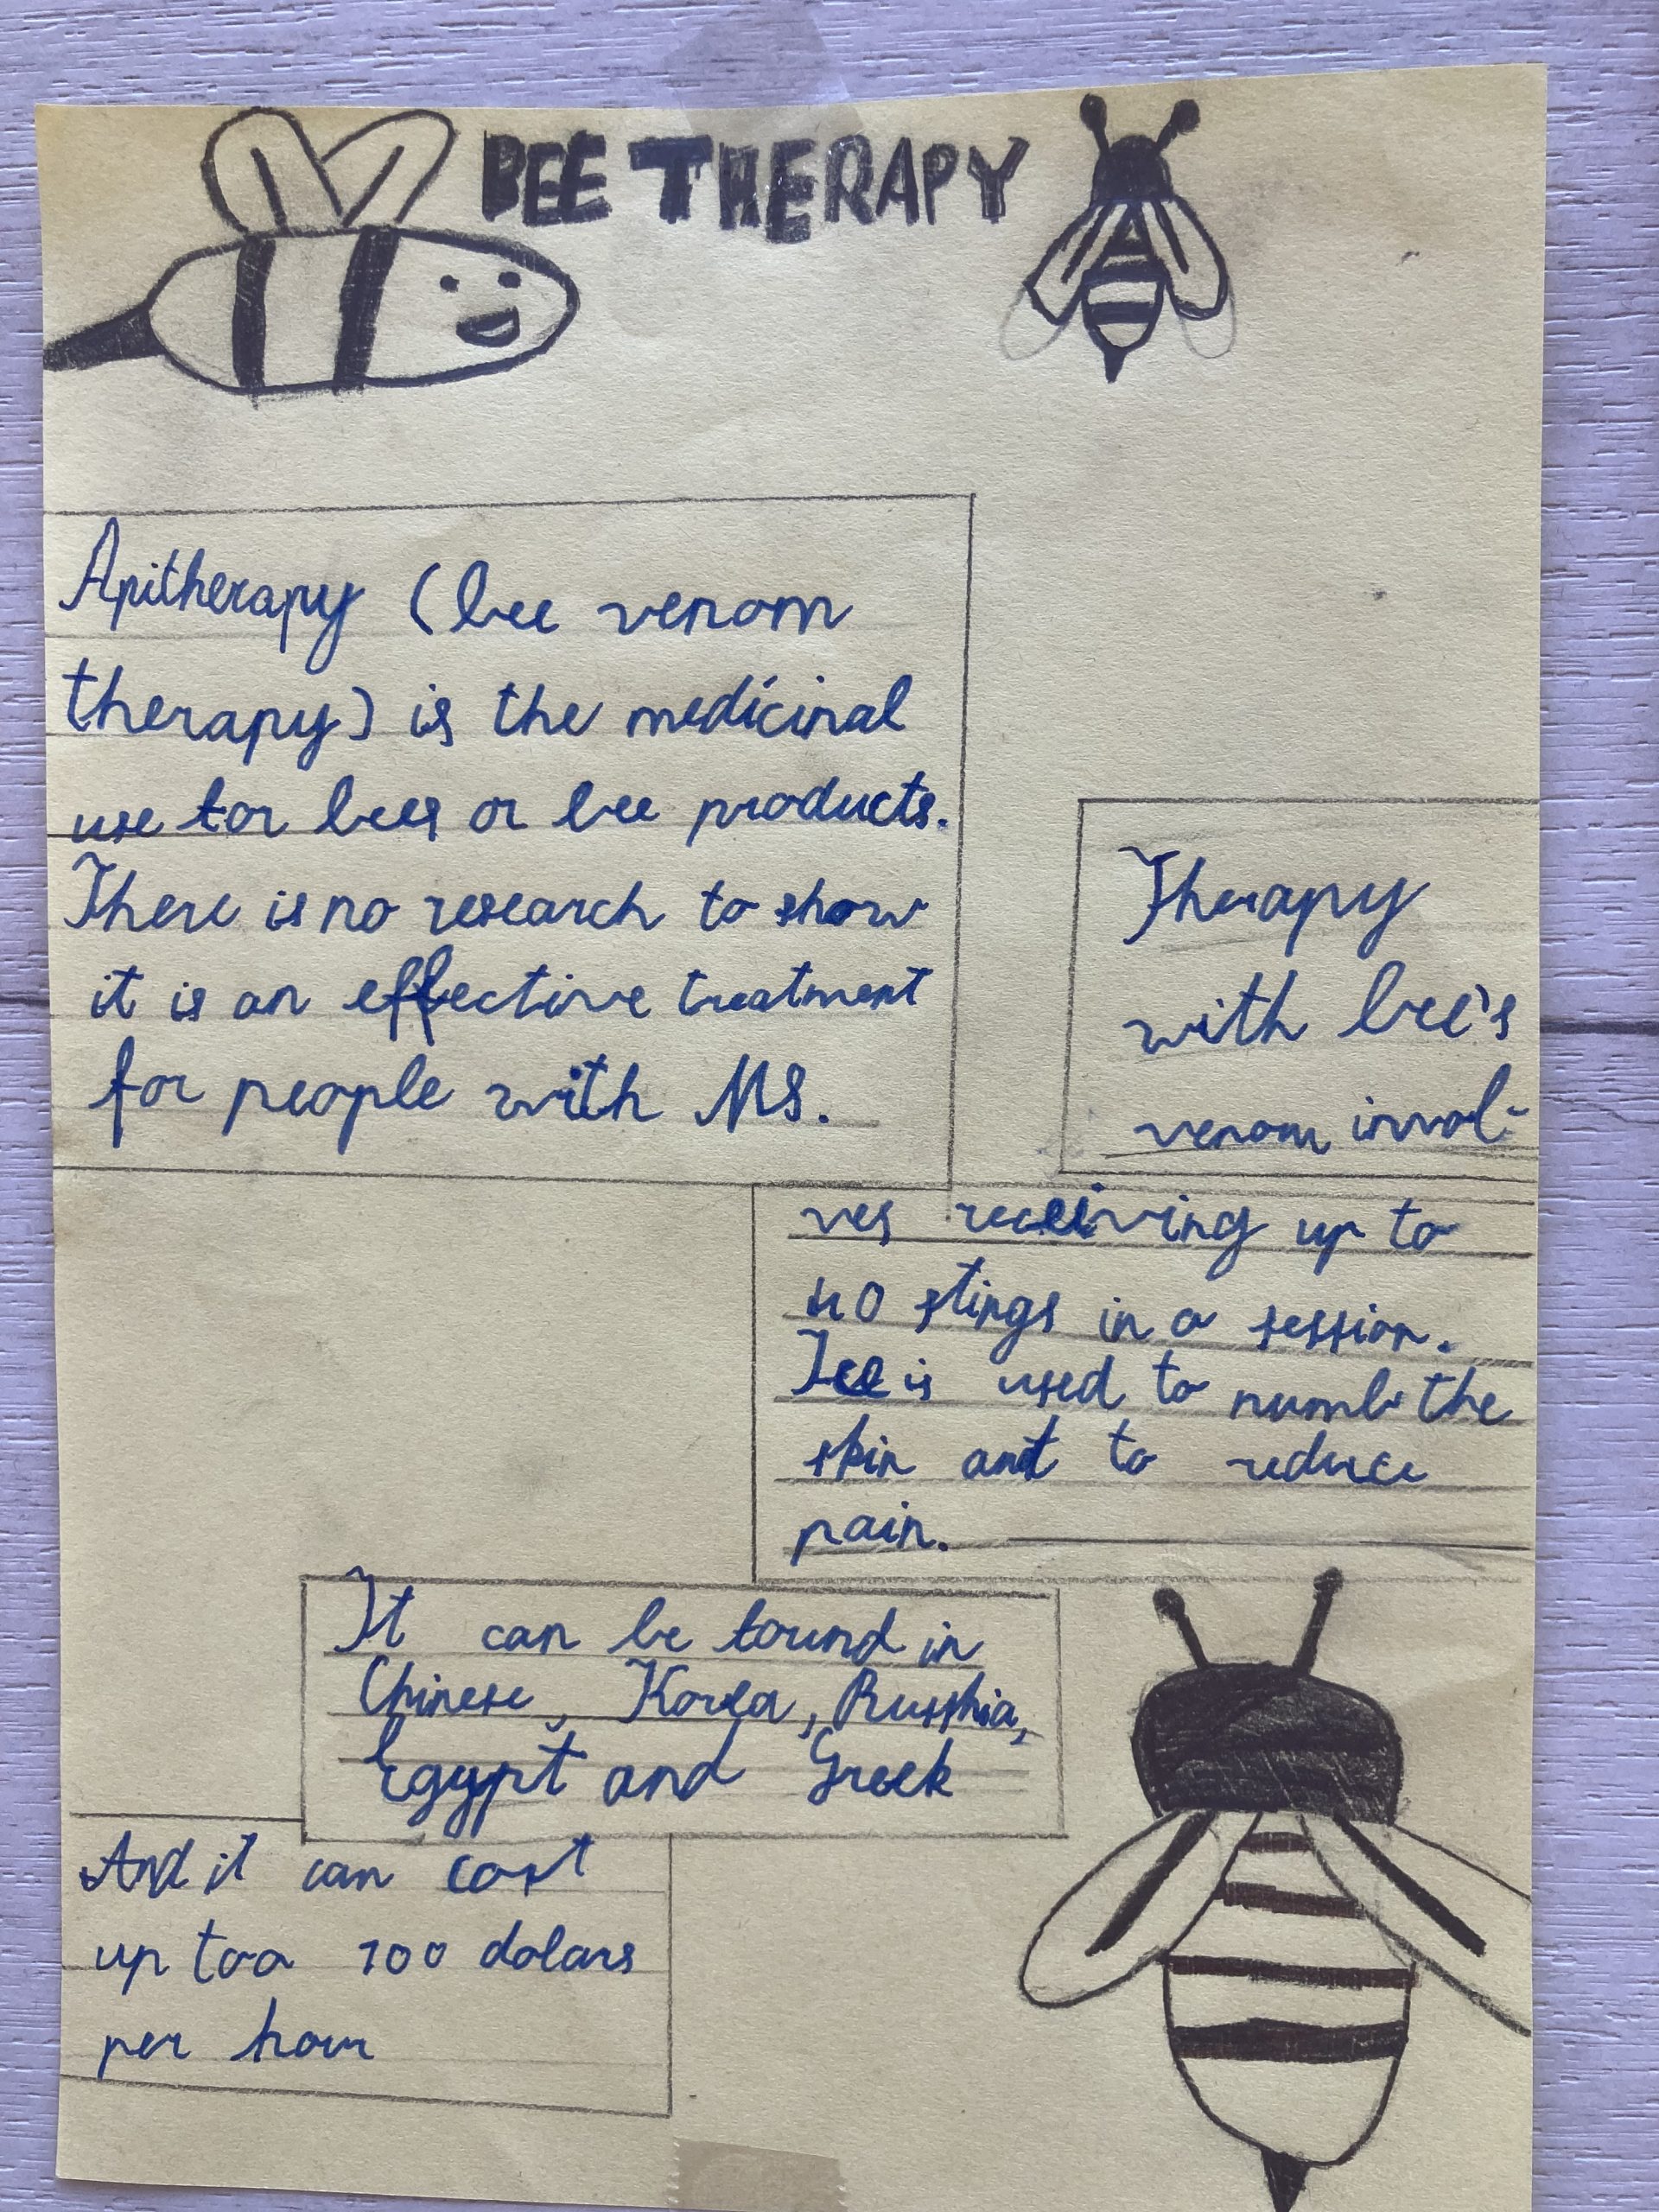 BEE THERAPY
Apitherapy (bee venom
therapy) is the medicinal
use for bees or bee products.
There is no research to show
it is an effective treatment
for people with MS.
Therapy
with bee's
venom invol-
ves receiving up to
40 stings in a session.
Ice is used to numb the
skin and to reduce
pain.
It can be found in
Chinese, Korea, Russhia,
Egypt and Greek
And it can cost
up too 100 dolars
per hour